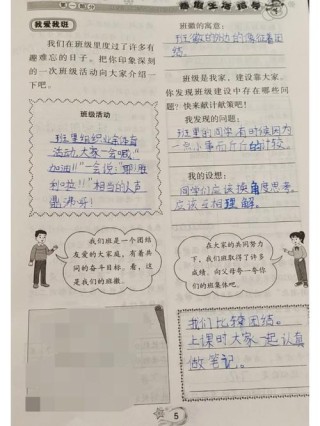 第一部分
我爱我班
我们在班级里度过了许多有
趣难忘的日子。把你印象深刻
的一次班级活动向大家介绍一
下吧。
班级活动
班里组织业余体育
活动,大家一会喊"
加油!!"一会说:"耶!胜
利啦!!"相当的人声
鼎沸哥!
我们班是一个团结
友爱的大家庭,有着共
同的奋斗目标。看,这
是我们的班徽。
寒假生活指导
班徽的寓意:
班徽的外边的
团结。
班级是我家,建设靠大家。
你发现班级建设中存在哪些问
题?快来献计献策吧!
我发现的问题:
班里的同学有时候因为
一点小事而斤斤的计较。
我的设想:
同学们应该换角度思考。
应该互相理解。
在大家的共同努力
下,我们班取得了许多
成绩,向父母夸一夸你
们的班集体吧。
我们比较团结。
上课时大家一起认真
做笔记。
5